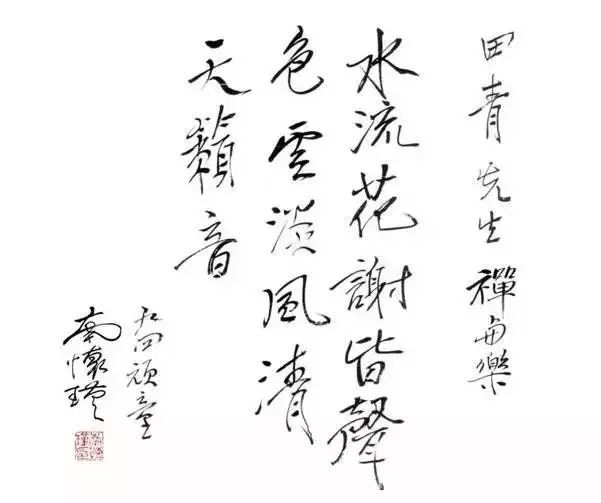 田青先生禪與樂
水流花謝皆聲
色雲淡風清
天籟音
南懷瑾